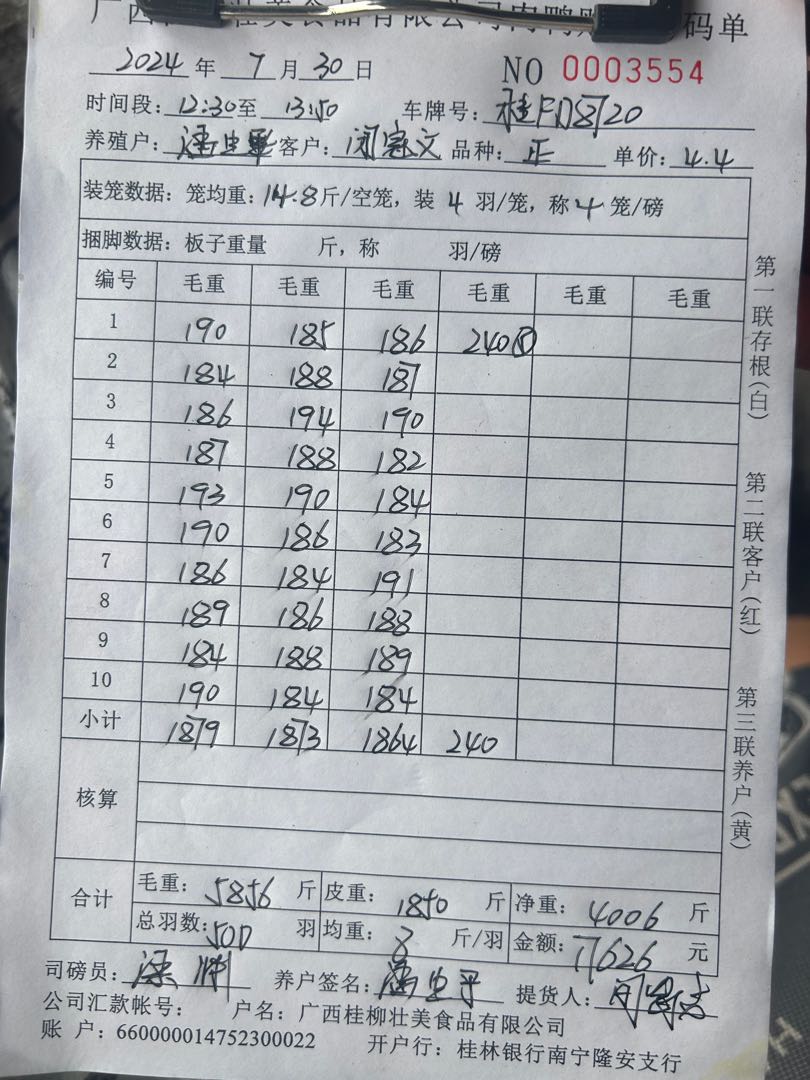 壮美食品有限公司肉鸭 码单
2024 年 7 月 30 日 NO 0003554
时间段: 12:30 至 13:50 车牌号: 桂
养殖户: 客户: 闭 文 品种: 正 单价: 4.4
装笼数据: 笼均重: 14.8 斤/空笼, 装 4 羽/笼, 称 4 笼/磅
捆脚数据: 板子重量 斤, 称 羽/磅
编号 毛重 毛重 毛重 毛重 毛重 毛重
1 190 185 186 240⑤
2 184 188 187
3 186 194 190
4 187 188 182
5 193 190 184
6 190 186 183
7 186 184 191
8 189 186 188
9 184 188 189
10 190 184 184
小计 1879 1873 1864 240
核算
合计 毛重: 5856 斤 皮重: 1850 斤 净重: 4006 斤
总羽数: 500 羽 均重: 8 斤/羽 金额: 17626 元
司磅员: 梁 养户签名: 提货人: 闭
公司汇款帐号: 户名: 广西桂柳壮美食品有限公司
账 户: 660000014752300022 开户行: 桂林银行南宁隆安支行
第一联存根(白)
第二联客户(红)
第三联养户(黄)